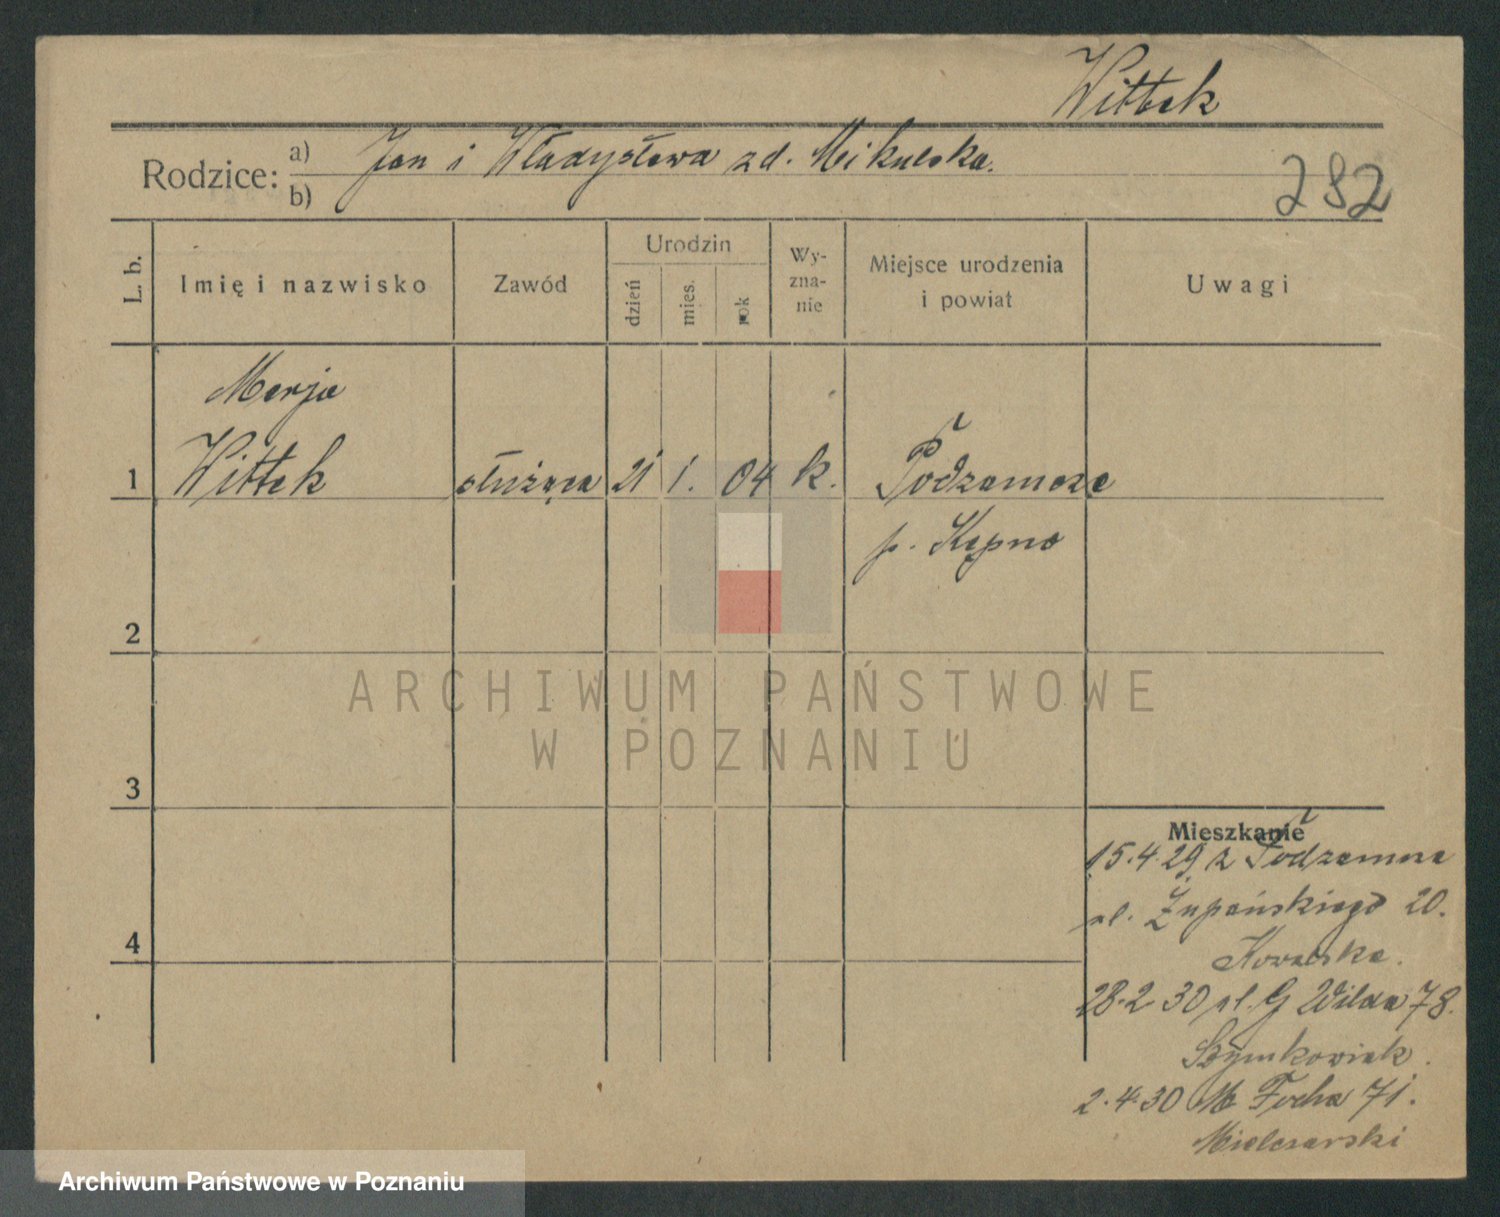 Wittek
Rodzice: a) Jan i Władysława zd. Mikulska.
b)
282
L. b.
Imię i nazwisko
Zawód
Urodzin
dzień
mies.
rok
Wy-
zna-
nie
Miejsce urodzenia
i powiat
Uwagi
Marja
1 Wittek służąca 21 1. 04 k. Podzamcze
p. Kępno
2
ARCHIWUM PAŃSTWOWE
W POZNANIU
3
Mieszkanie
15.4.29 z Podzamcza
ul. Żupańskiego 20.
Kowalska.
28.2.30 ul. G Wilda 78.
Szymkowiak.
4
2.4.30 M Focha 71.
Mielcarski
Archiwum Państwowe w Poznaniu